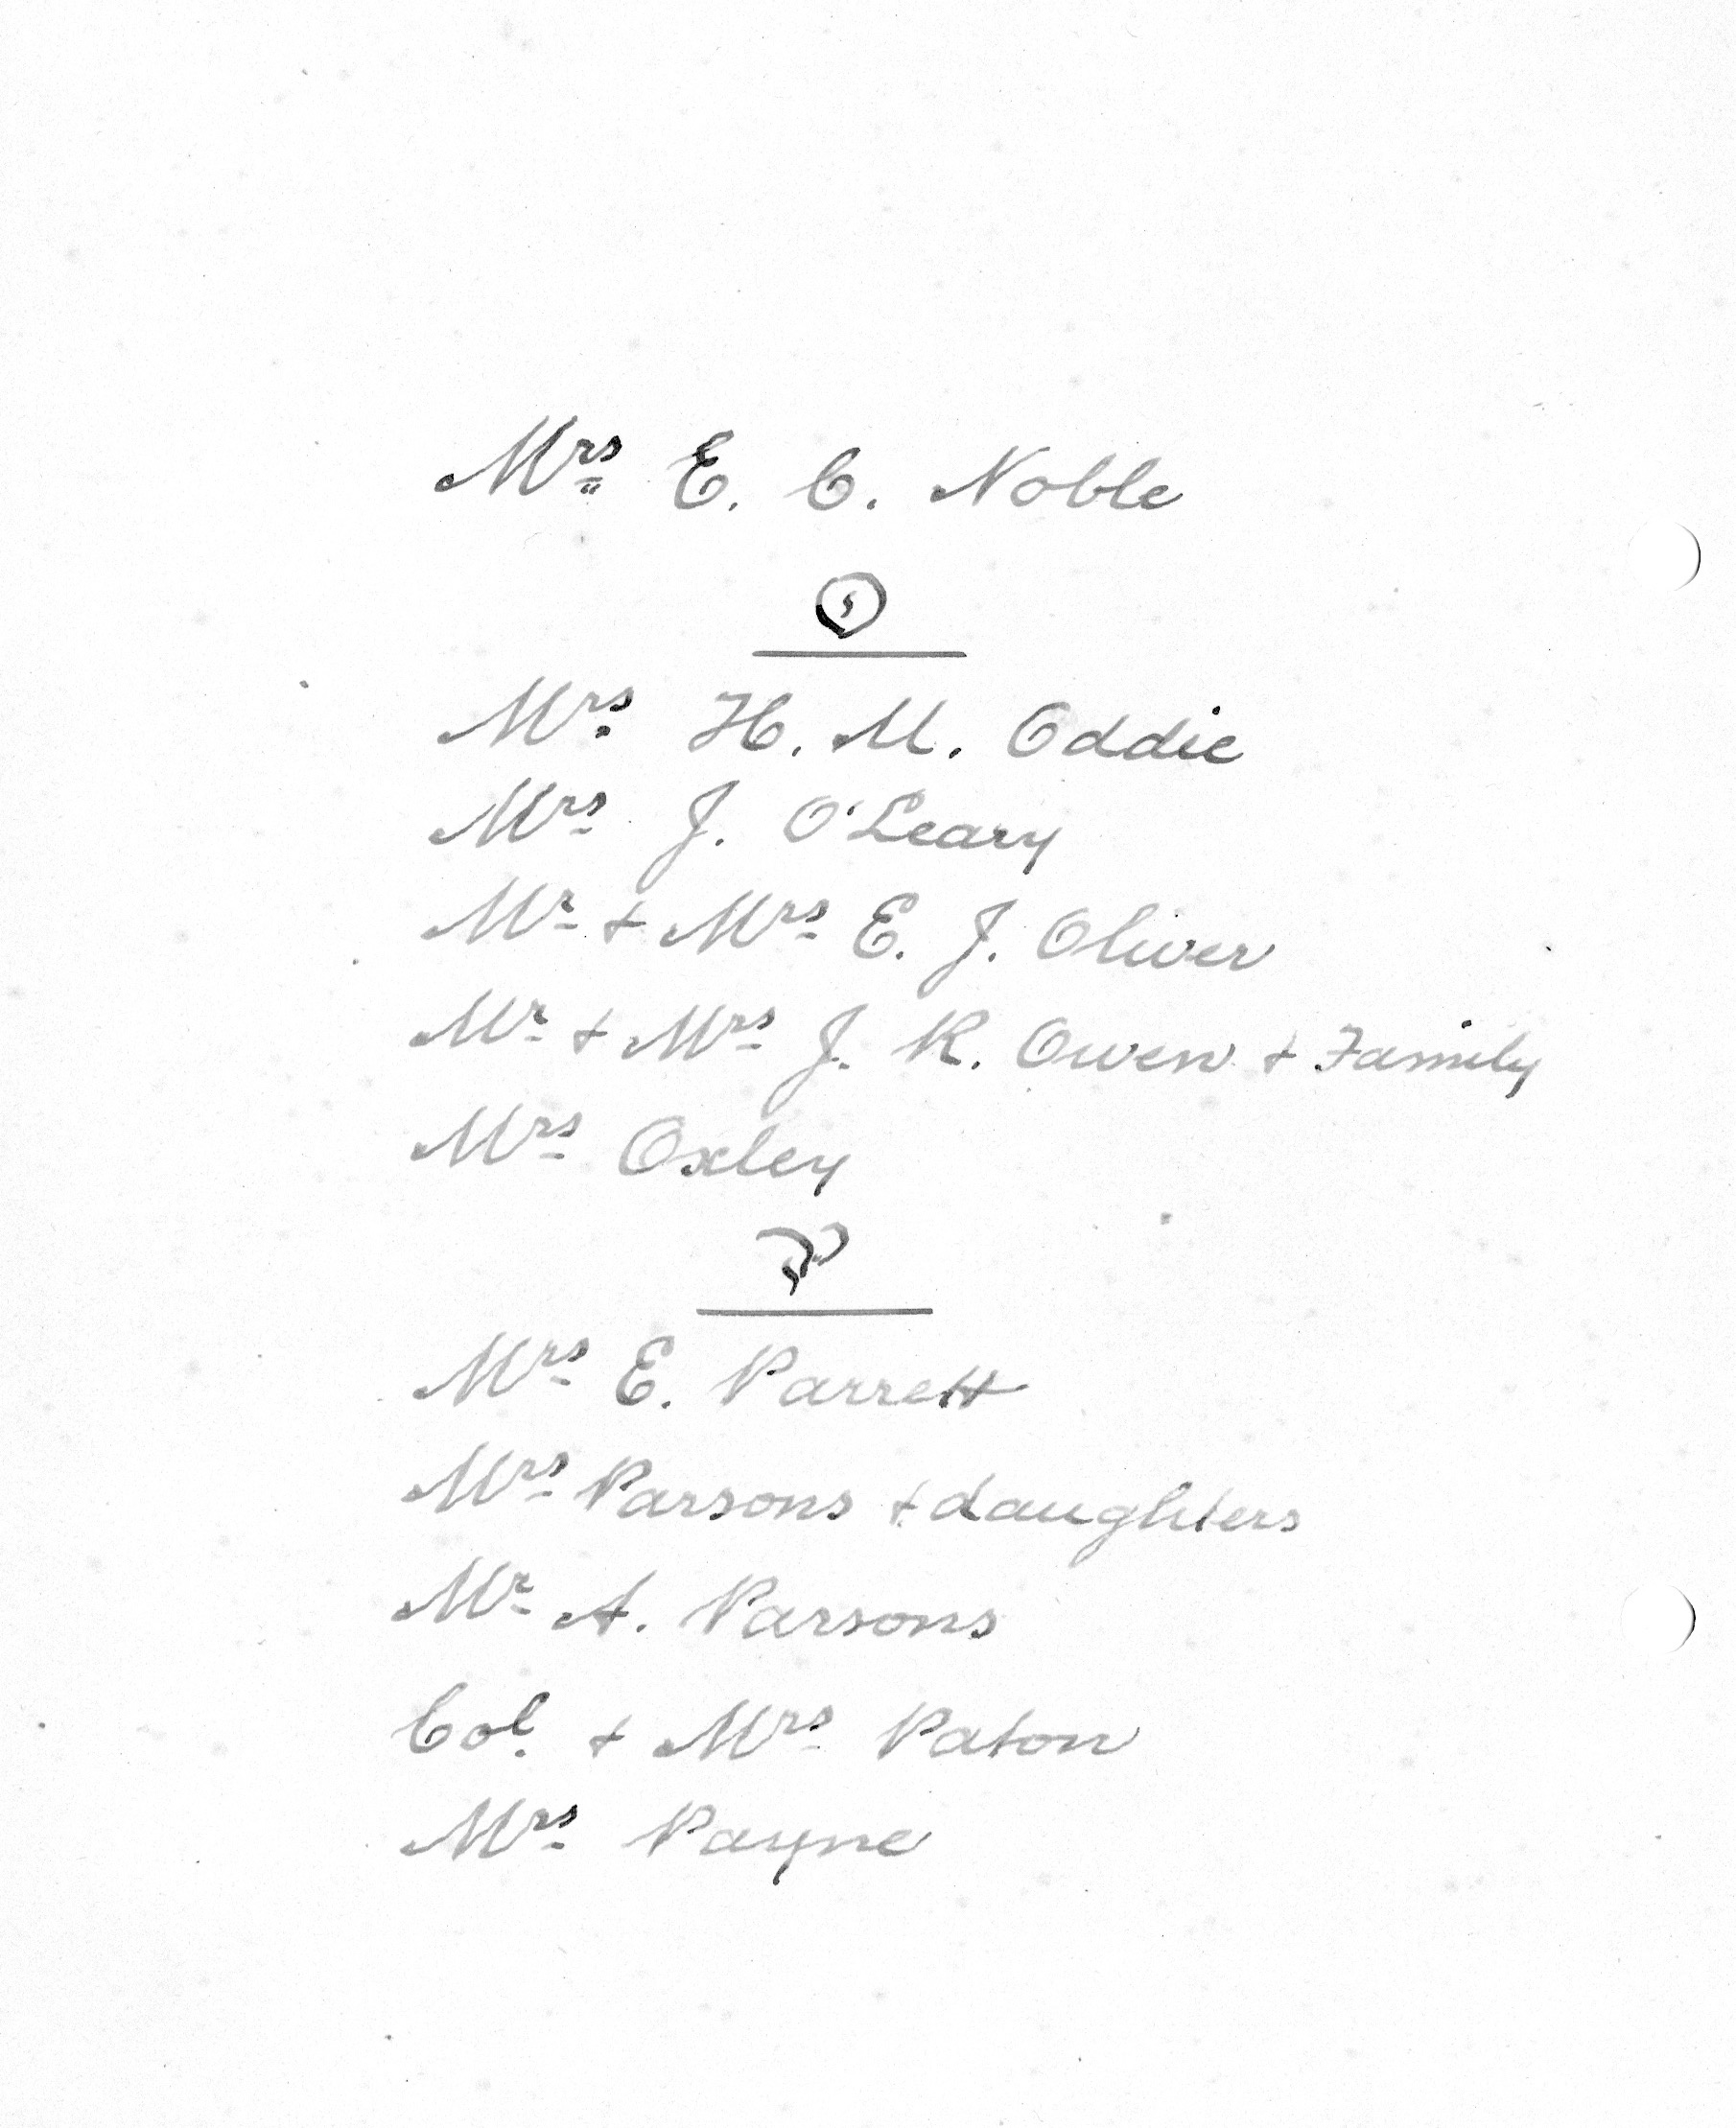 Mrs E. C. Noble
O
Mrs. H. M. Oddie
Mrs J. O'Leary
Mr & Mrs E. J. Oliver
Mr & Mrs J. R. Owen & Family
Mrs Oxley
P
Mrs E. Parrett
Mrs Parsons & daughters
Mr A. Parsons
Col. & Mrs Paton
Mrs Payne